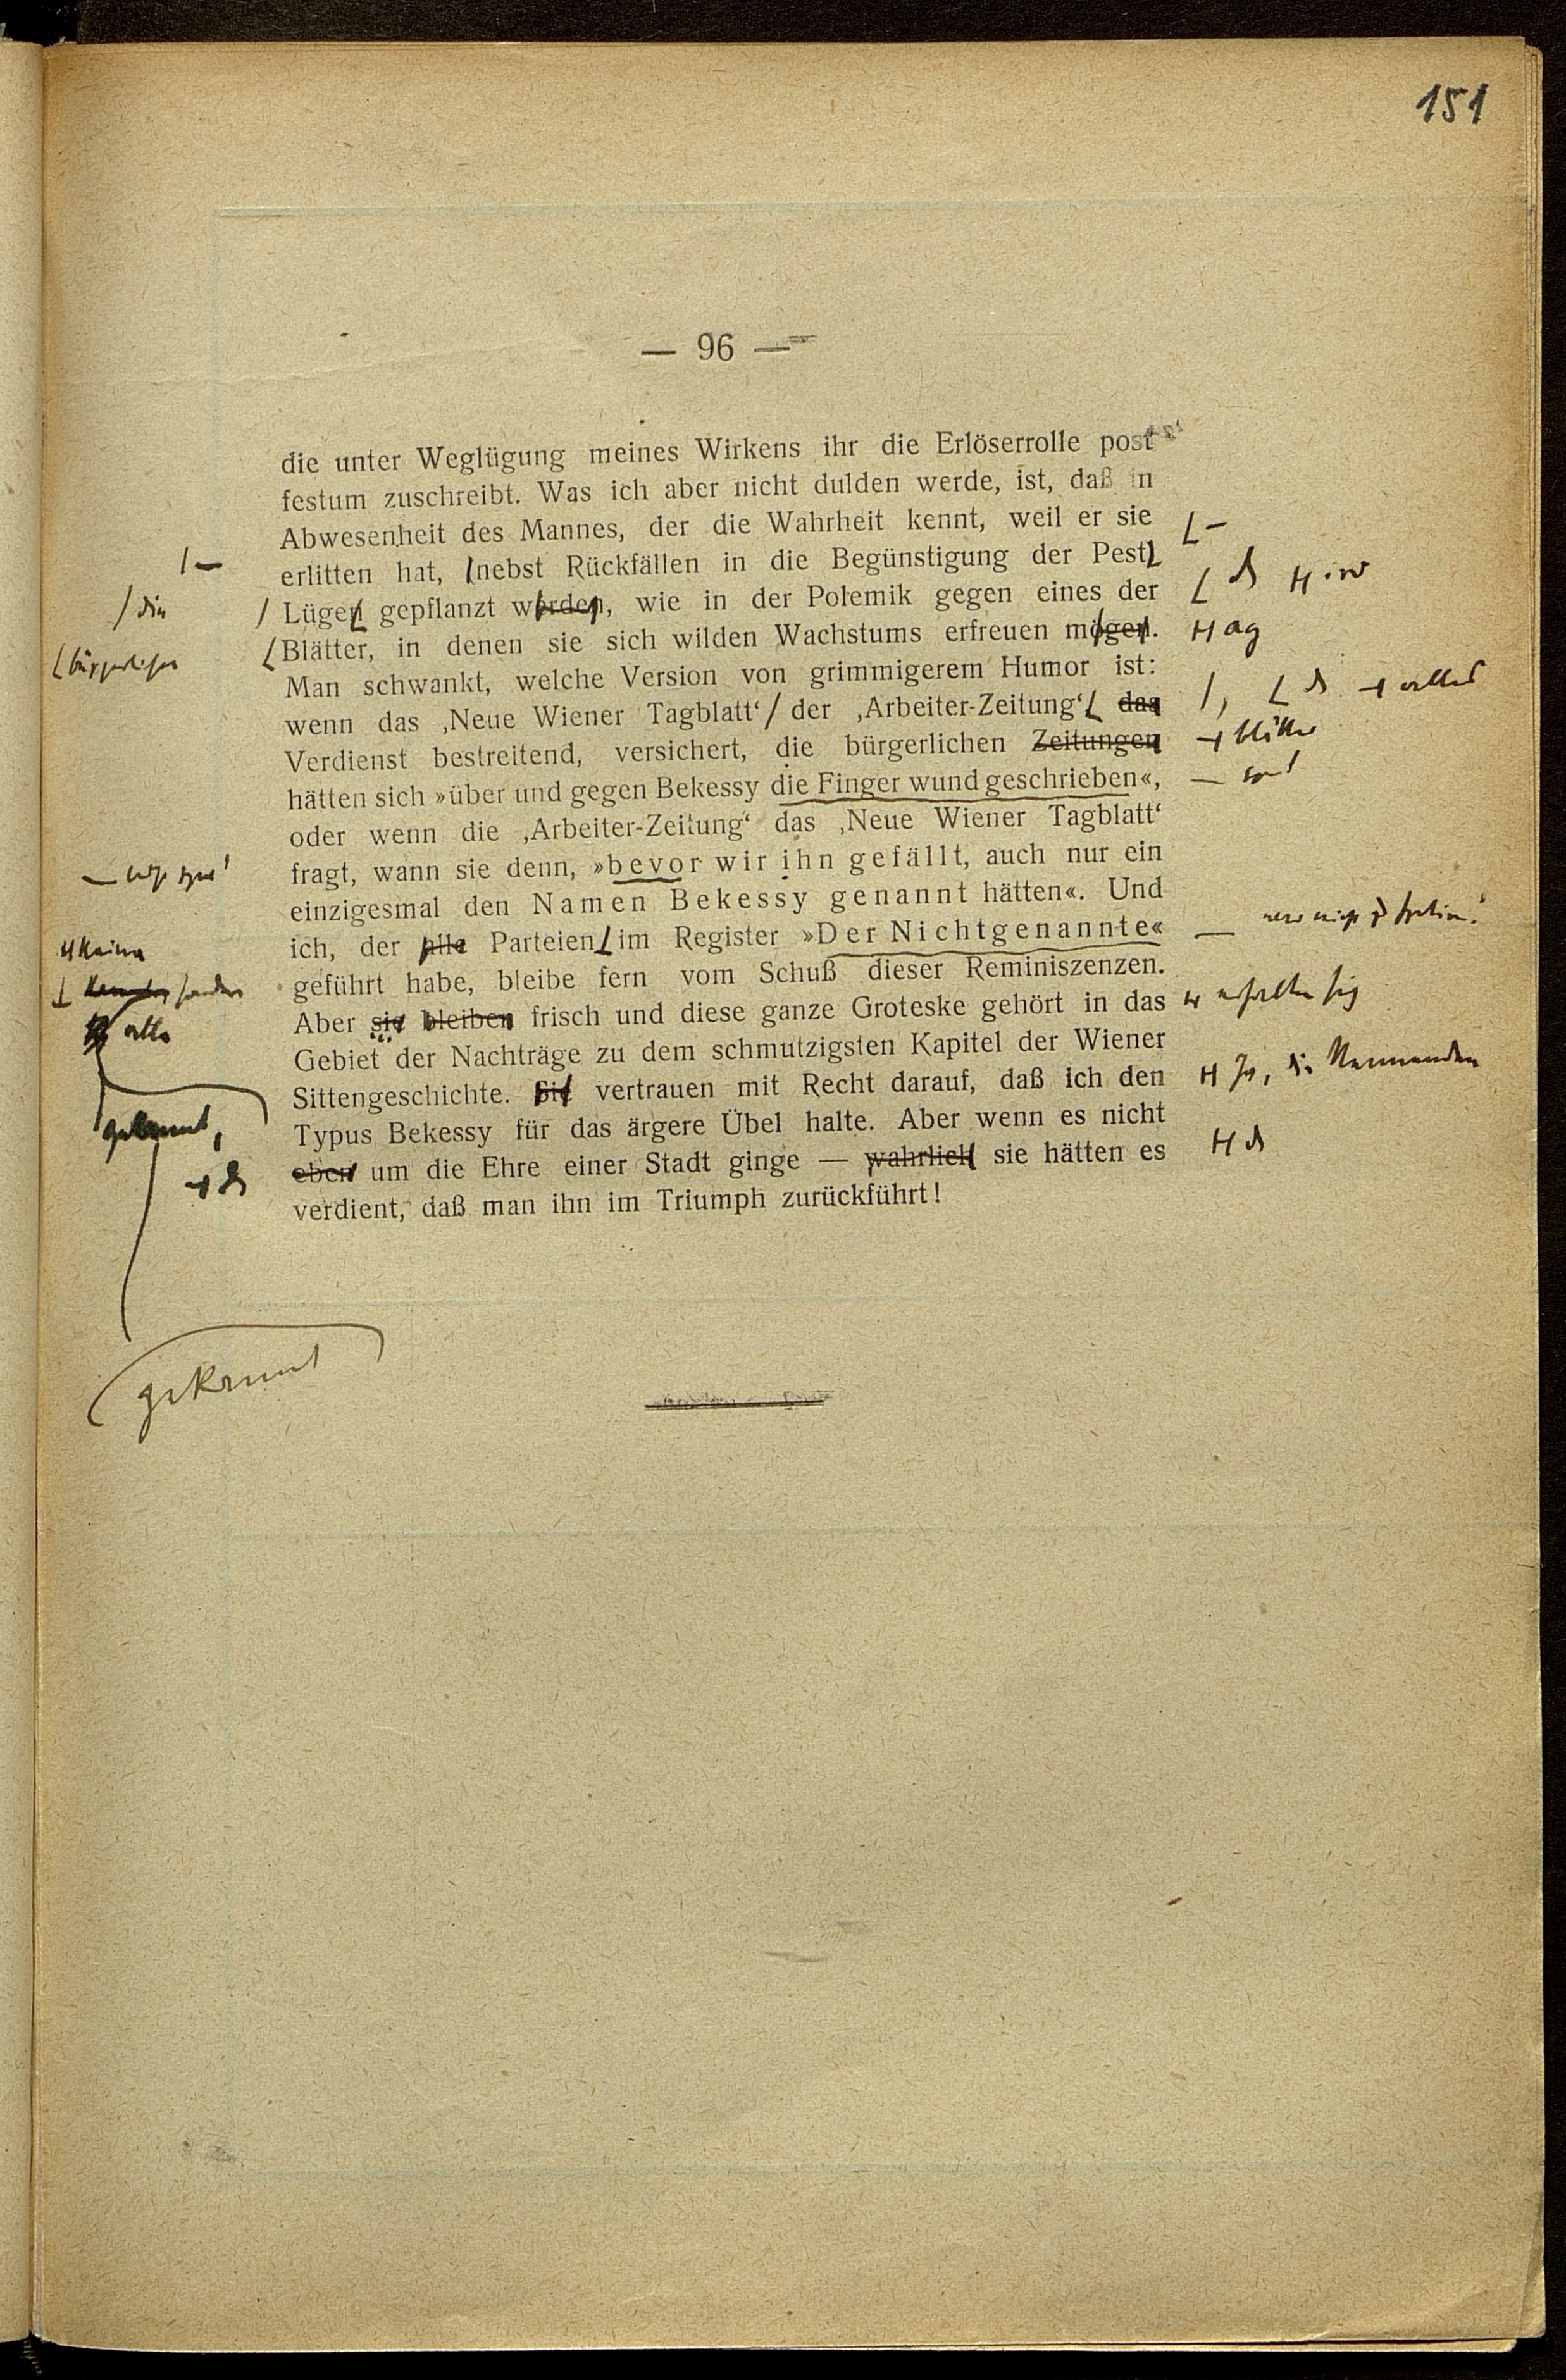 151
— 96 —
die unter Weglügung meines Wirkens ihr die Erlöserrolle post
festum zuschreibt. Was ich aber nicht dulden werde, ist, daß in
Abwesenheit des Mannes, der die Wahrheit kennt, weil er sie
erlitten hat, nebst Rückfällen in die Begünstigung der Pest
/ die
Lügen gepflanzt werden, wie in der Polemik gegen eines der
bürgerlichen
Blätter, in denen sie sich wilden Wachstums erfreuen mögen.
ag
Man schwankt, welche Version von grimmigerem Humor ist:
wenn das ‚Neue Wiener Tagblatt‘ / der ‚Arbeiter-Zeitung‘ das
Verdienst bestreitend, versichert, die bürgerlichen Zeitungen
blätter
hätten sich »über und gegen Bekessy die Finger wund geschrieben«,
oder wenn die ‚Arbeiter-Zeitung‘ das ‚Neue Wiener Tagblatt‘
fragt, wann sie denn, »bevor wir ihn gefällt, auch nur ein
einzigesmal den Namen Bekessy genannt hätten«. Und
keine
ich, der alle Parteien im Register »Der Nichtgenannte«
sondern
geführt habe, bleibe fern vom Schuß dieser Reminiszenzen.
alle
Aber sie bleiben frisch und diese ganze Groteske gehört in das
erhalten sich
Gebiet der Nachträge zu dem schmutzigsten Kapitel der Wiener
Sittengeschichte. Sie vertrauen mit Recht darauf, daß ich den
gekannt,
Typus Bekessy für das ärgere Übel halte. Aber wenn es nicht
eben um die Ehre einer Stadt ginge — wahrlich sie hätten es
verdient, daß man ihn im Triumph zurückführt!
gekannt